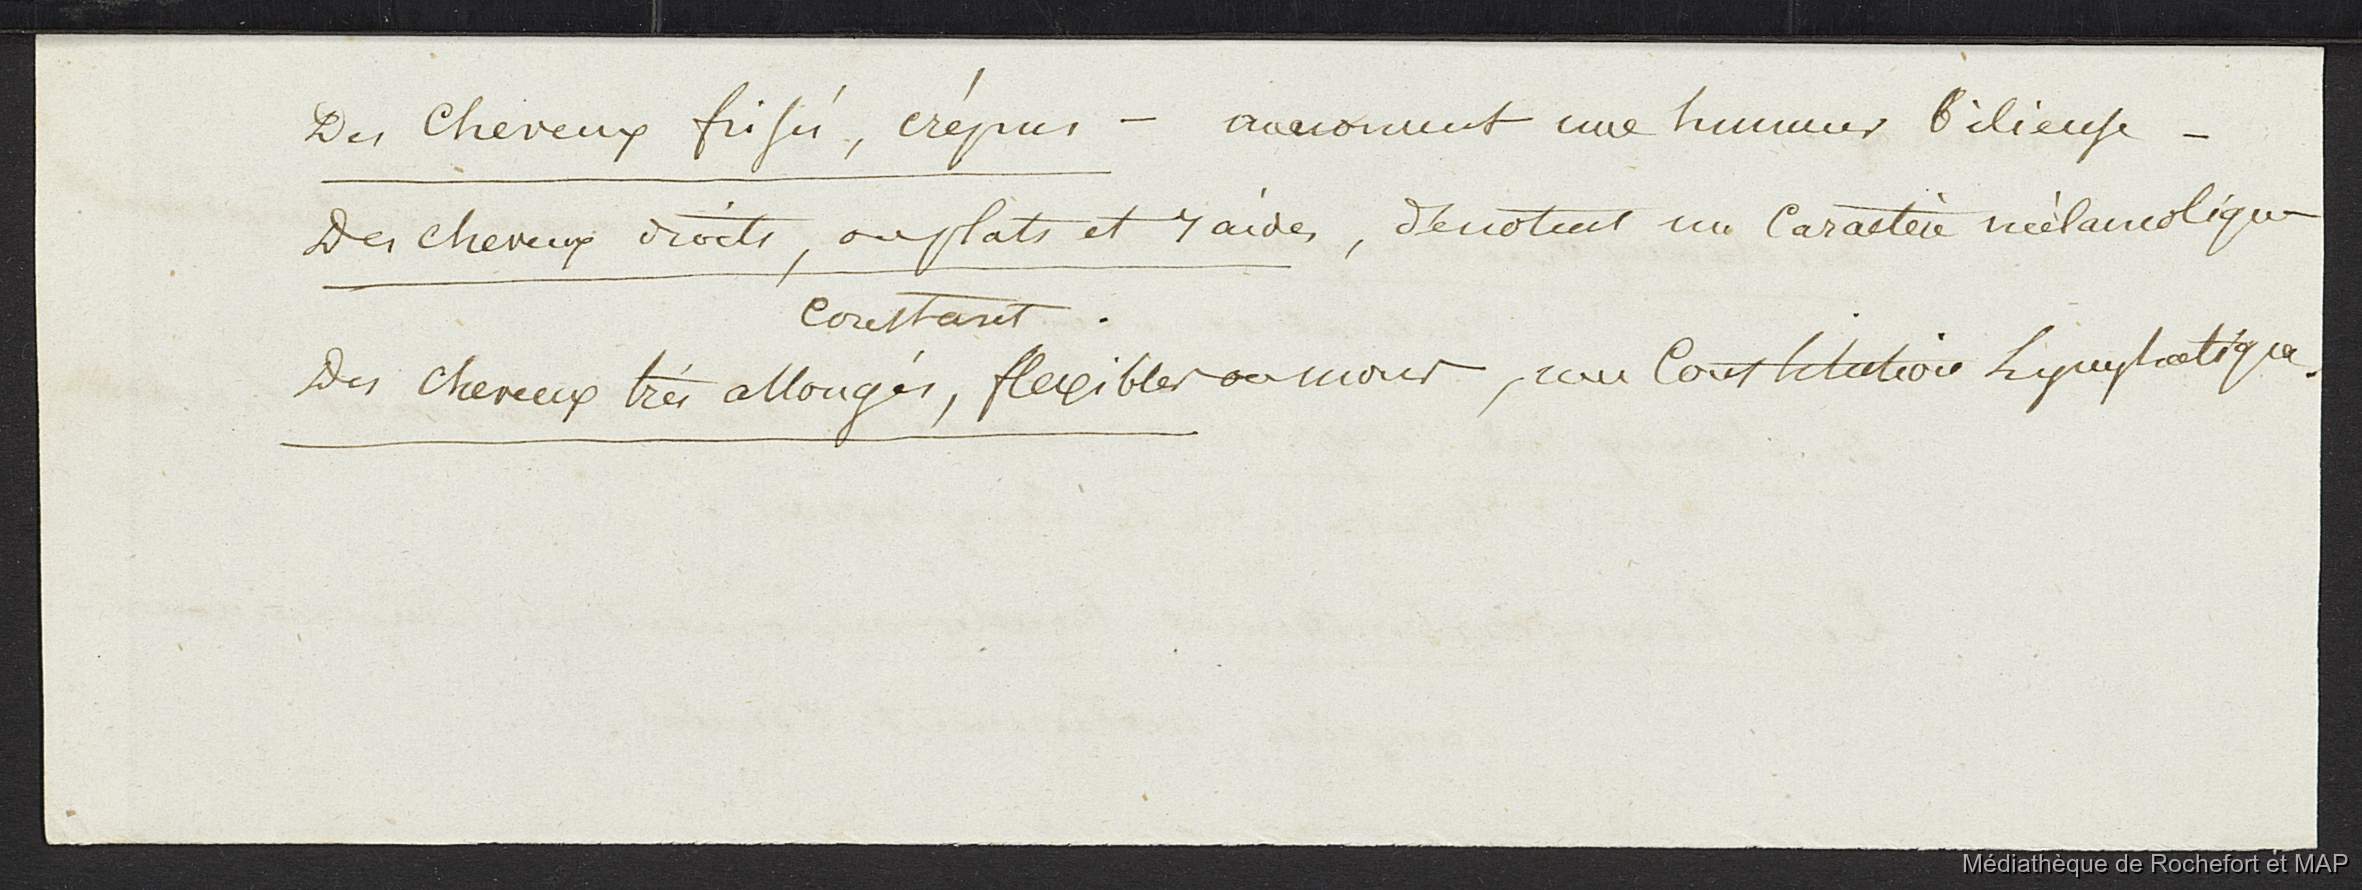 Des Cheveux frisés, crépus – annoncent une humeur bilieuse –
Des cheveux droits, ou plats et raides, dénotent un Caractère mélancolique
Constant.
Des cheveux très allongés, flexibles ou mous, une Constitution Lymphatique.
Médiathèque de Rochefort et MAP